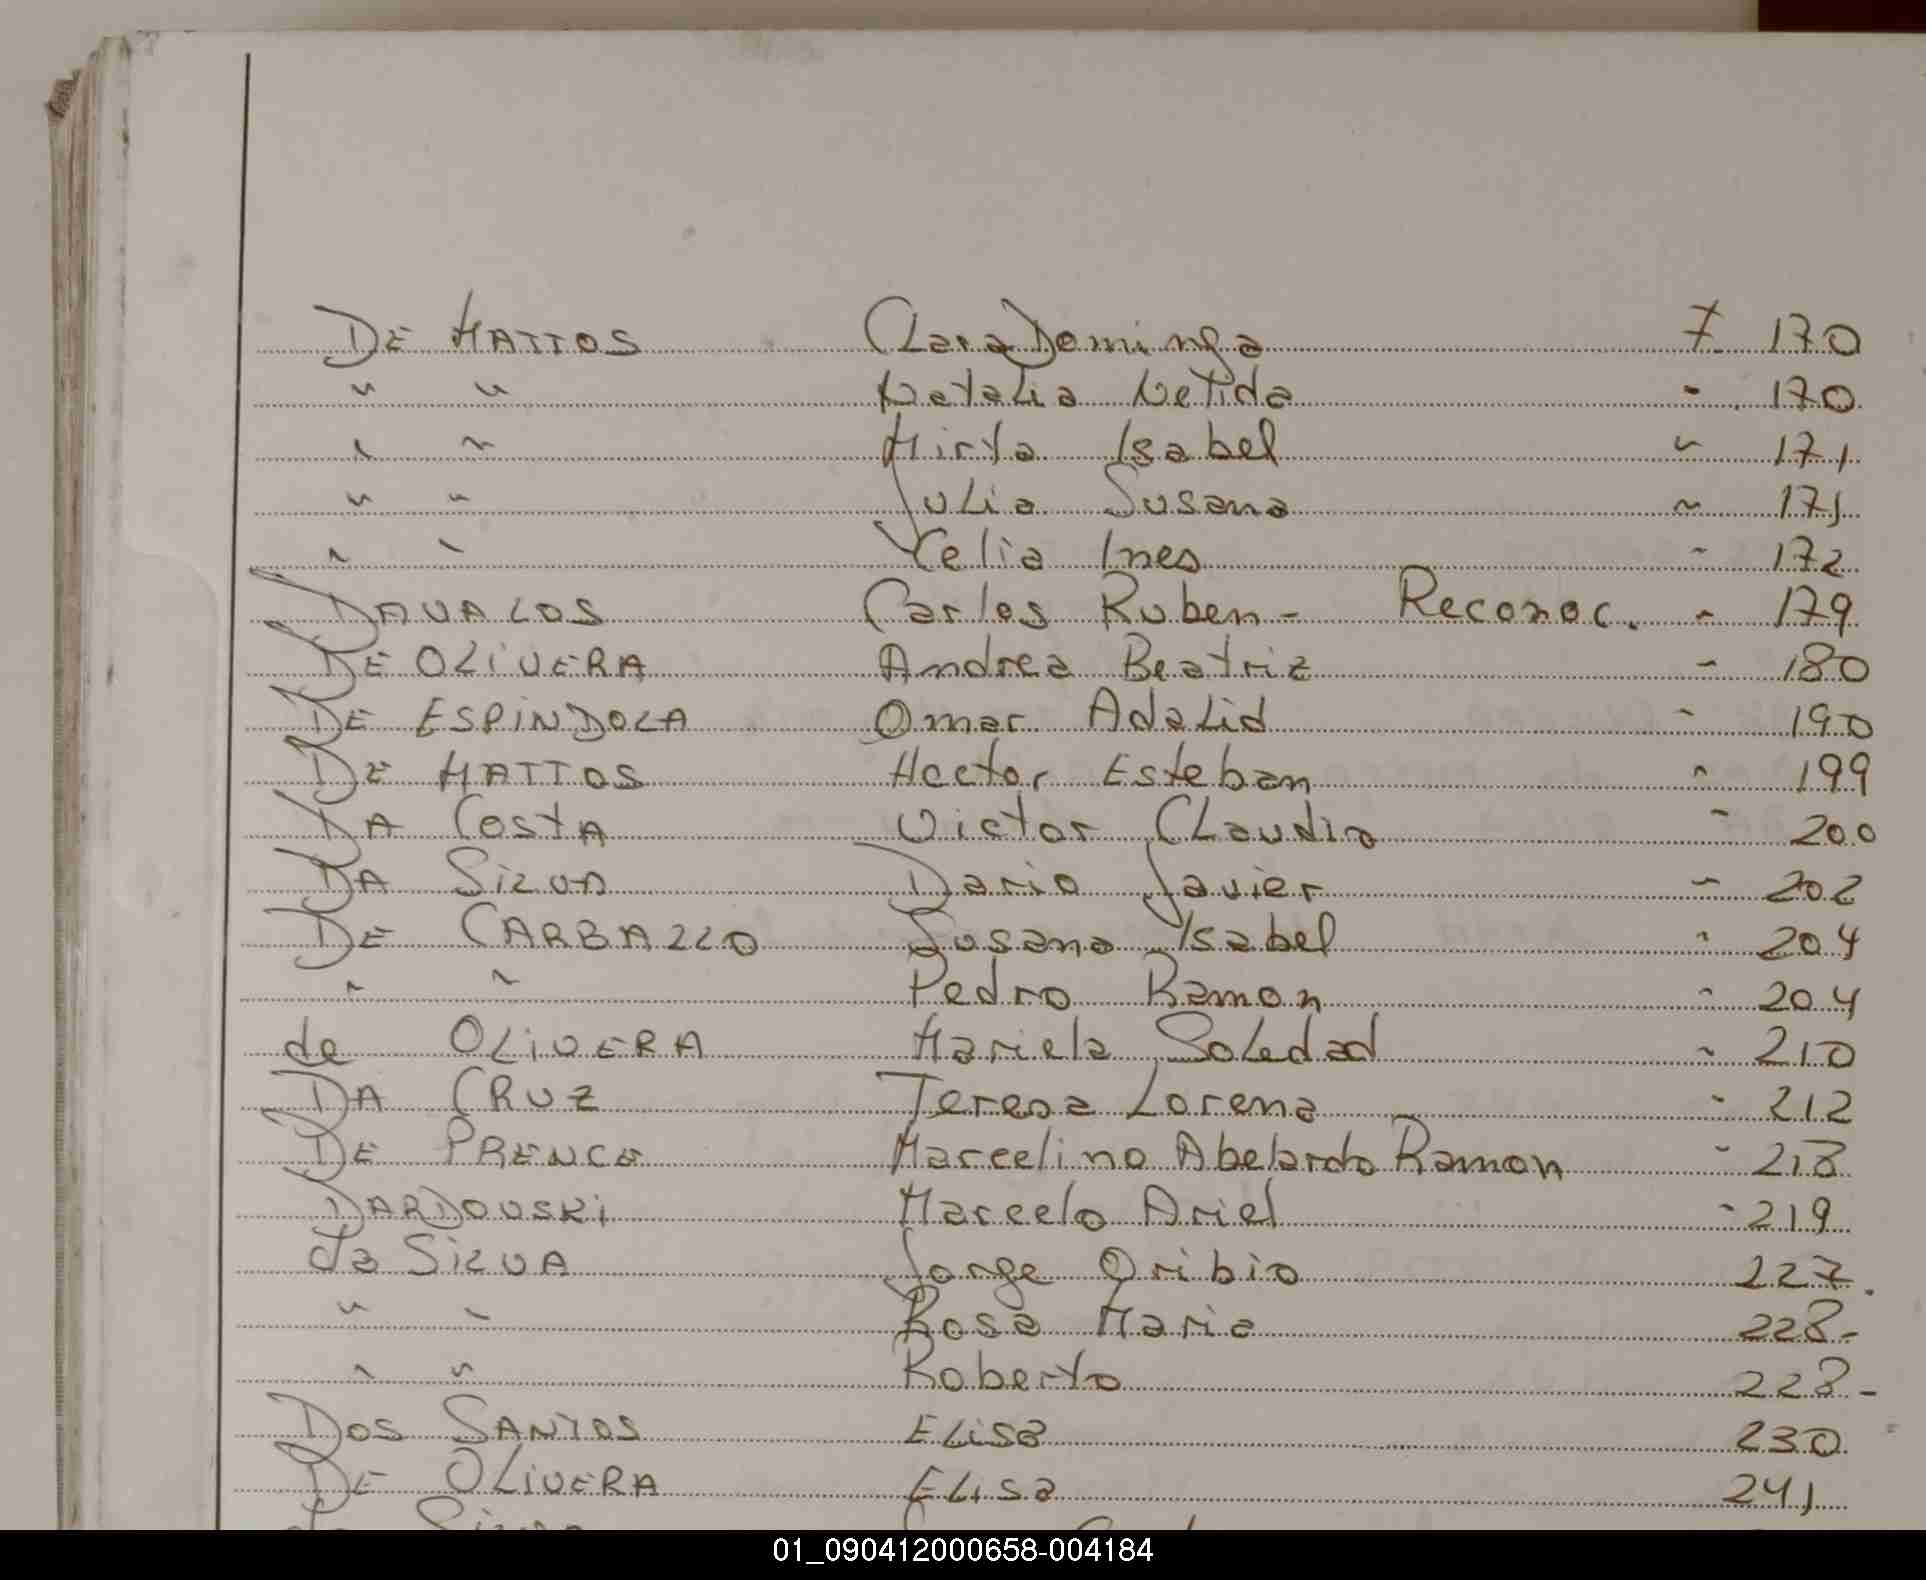 DE MATTOS Clara Dominga F. 170
" " Natalia Nelida " 170
" " Mirta Isabel " 171
" " Julia Susana " 171
" " Celia Ines " 172
DAVALOS Carlos Ruben - Reconoc. " 179
DE OLIVERA Andrea Beatriz " 180
DE ESPINDOLA Omar Adalid " 190
DE MATTOS Hector Esteban " 199
DA COSTA Victor Claudio " 200
DA SILVA Dario Javier " 202
DE CARBALLO Susana Isabel " 204
" " Pedro Ramon " 204
de OLIVERA Mariela Soledad " 210
DA CRUZ Teresa Lorena " 212
DE PRENCE Marcelino Abelardo Ramon " 218
DARDOUSKi Marcelo Ariel " 219
da SILVA Jorge Oribio 227.
" " Rosa Maria 228-
" " Roberto 228-
DOS SANTOS ELisa 230
DE OLIVERA ELisa 241
01_090412000658-004184